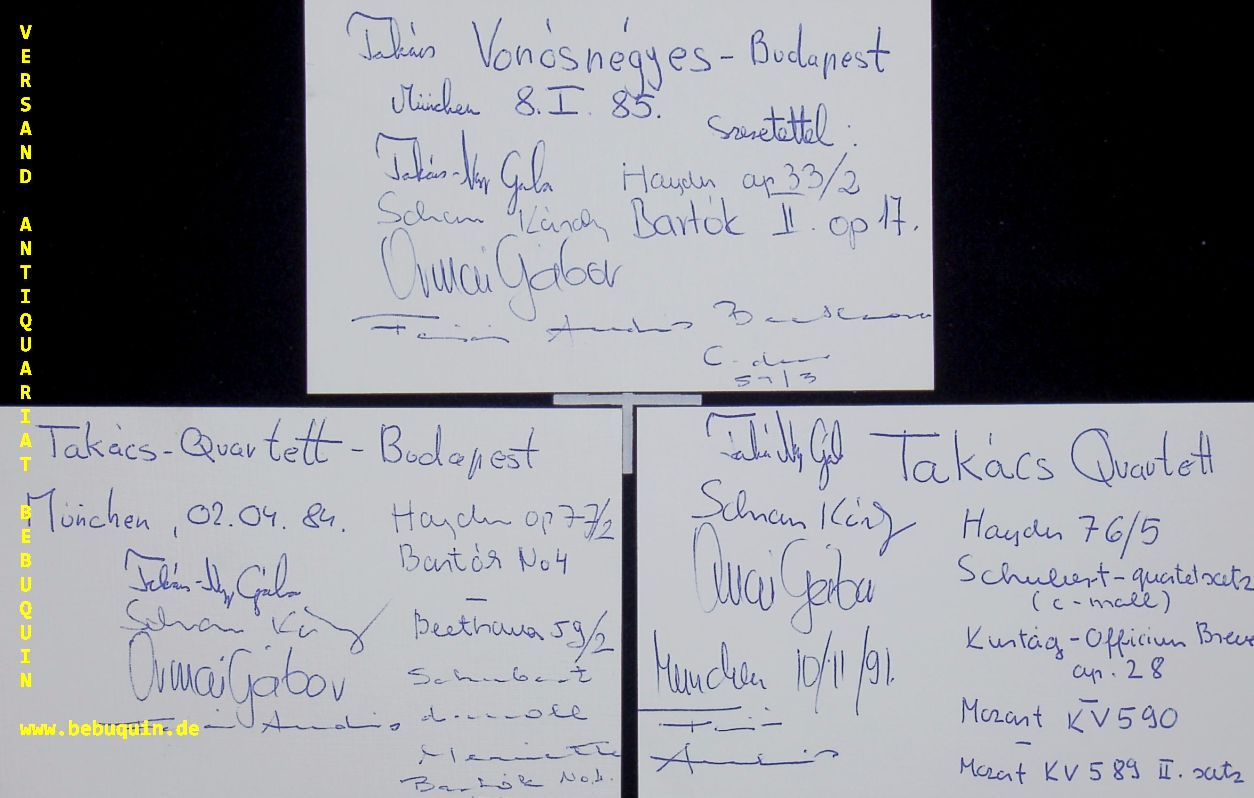 VERSAND ANTIQUARIAT BEBUQUIN
www.bebuquin.de
Takács Vonósnégyes - Budapest
München 8. I. 85.
Szeretettel :
Takács-Nagy Gábor
Haydn op 33/2
Schranz Károly
Bartók II. op 17.
Ormai Gábor
Fejér András
C-dur
59/3
Takács-Quartett - Budapest
München, 02.04. 84.
Haydn op 77/2
Bartók No 4
Takács-Nagy Gábor
Schranz Károly
Beethoven 59/2
Ormai Gábor
Schubert
Fejér András
d-moll
Menuetto
Bartók No.4.
Takács Nagy Gábor
Takács Quartett
Schranz Károly
Haydn 76/5
Ormai Gábor
Schubert - quartettsatz
(c-moll)
Kurtág - Officium Breve
op. 28
München 10/11/91.
Mozart KV 590
Fejér
András
Mozart KV 589 II. satz